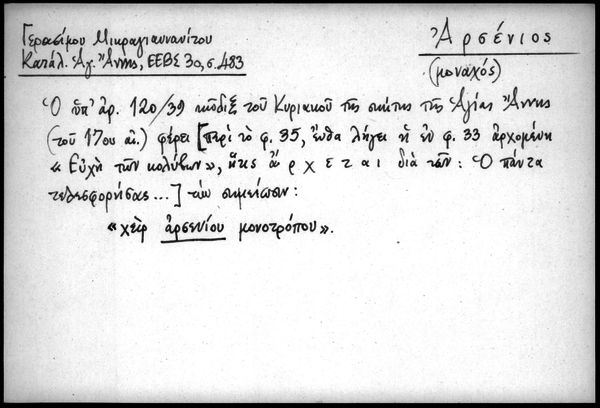 Γερασίμου Μικραγιαννανίτου
Κατάλ. Ἁγ. Ἄννης, ΕΕΒΣ 30, σ. 483
Ἀρσένιος
(μοναχός)
Ὁ ὑπ' ἀρ. 120/39 κῶδιξ τοῦ Κυριακοῦ τῆς σκήτης τῆς Ἁγίας Ἄννης
(τοῦ 17ου αἰ.) φέρει [περὶ τὸ φ. 35, ἔνθα λήγει ἡ ἐν φ. 33 ἀρχομένη
« Εὐχὴ τῶν κολύβων», ἥτις ἄρχεται διὰ τῶν: Ὁ πάντα
τελεσφορήσας ...] τὴν σημείωσιν:
«χεὶρ ἀρσενίου μονοτρόπου».